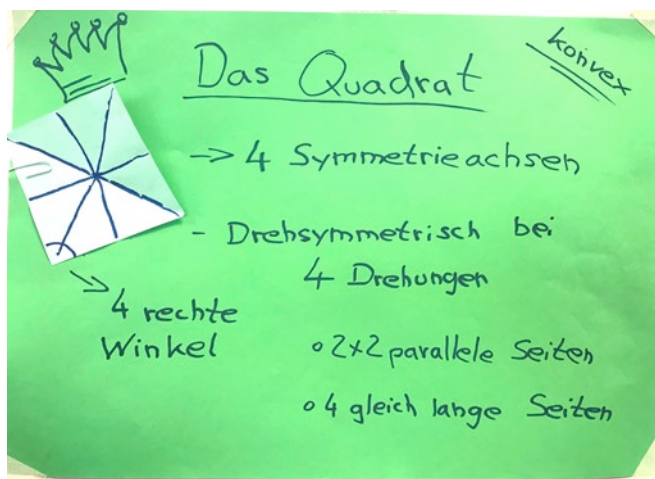 Das Quadrat
konvex
-> 4 Symmetrieachsen
- Drehsymmetrisch bei
4 Drehungen
-> 4 rechte
Winkel
o 2x2 parallele Seiten
o 4 gleich lange Seiten